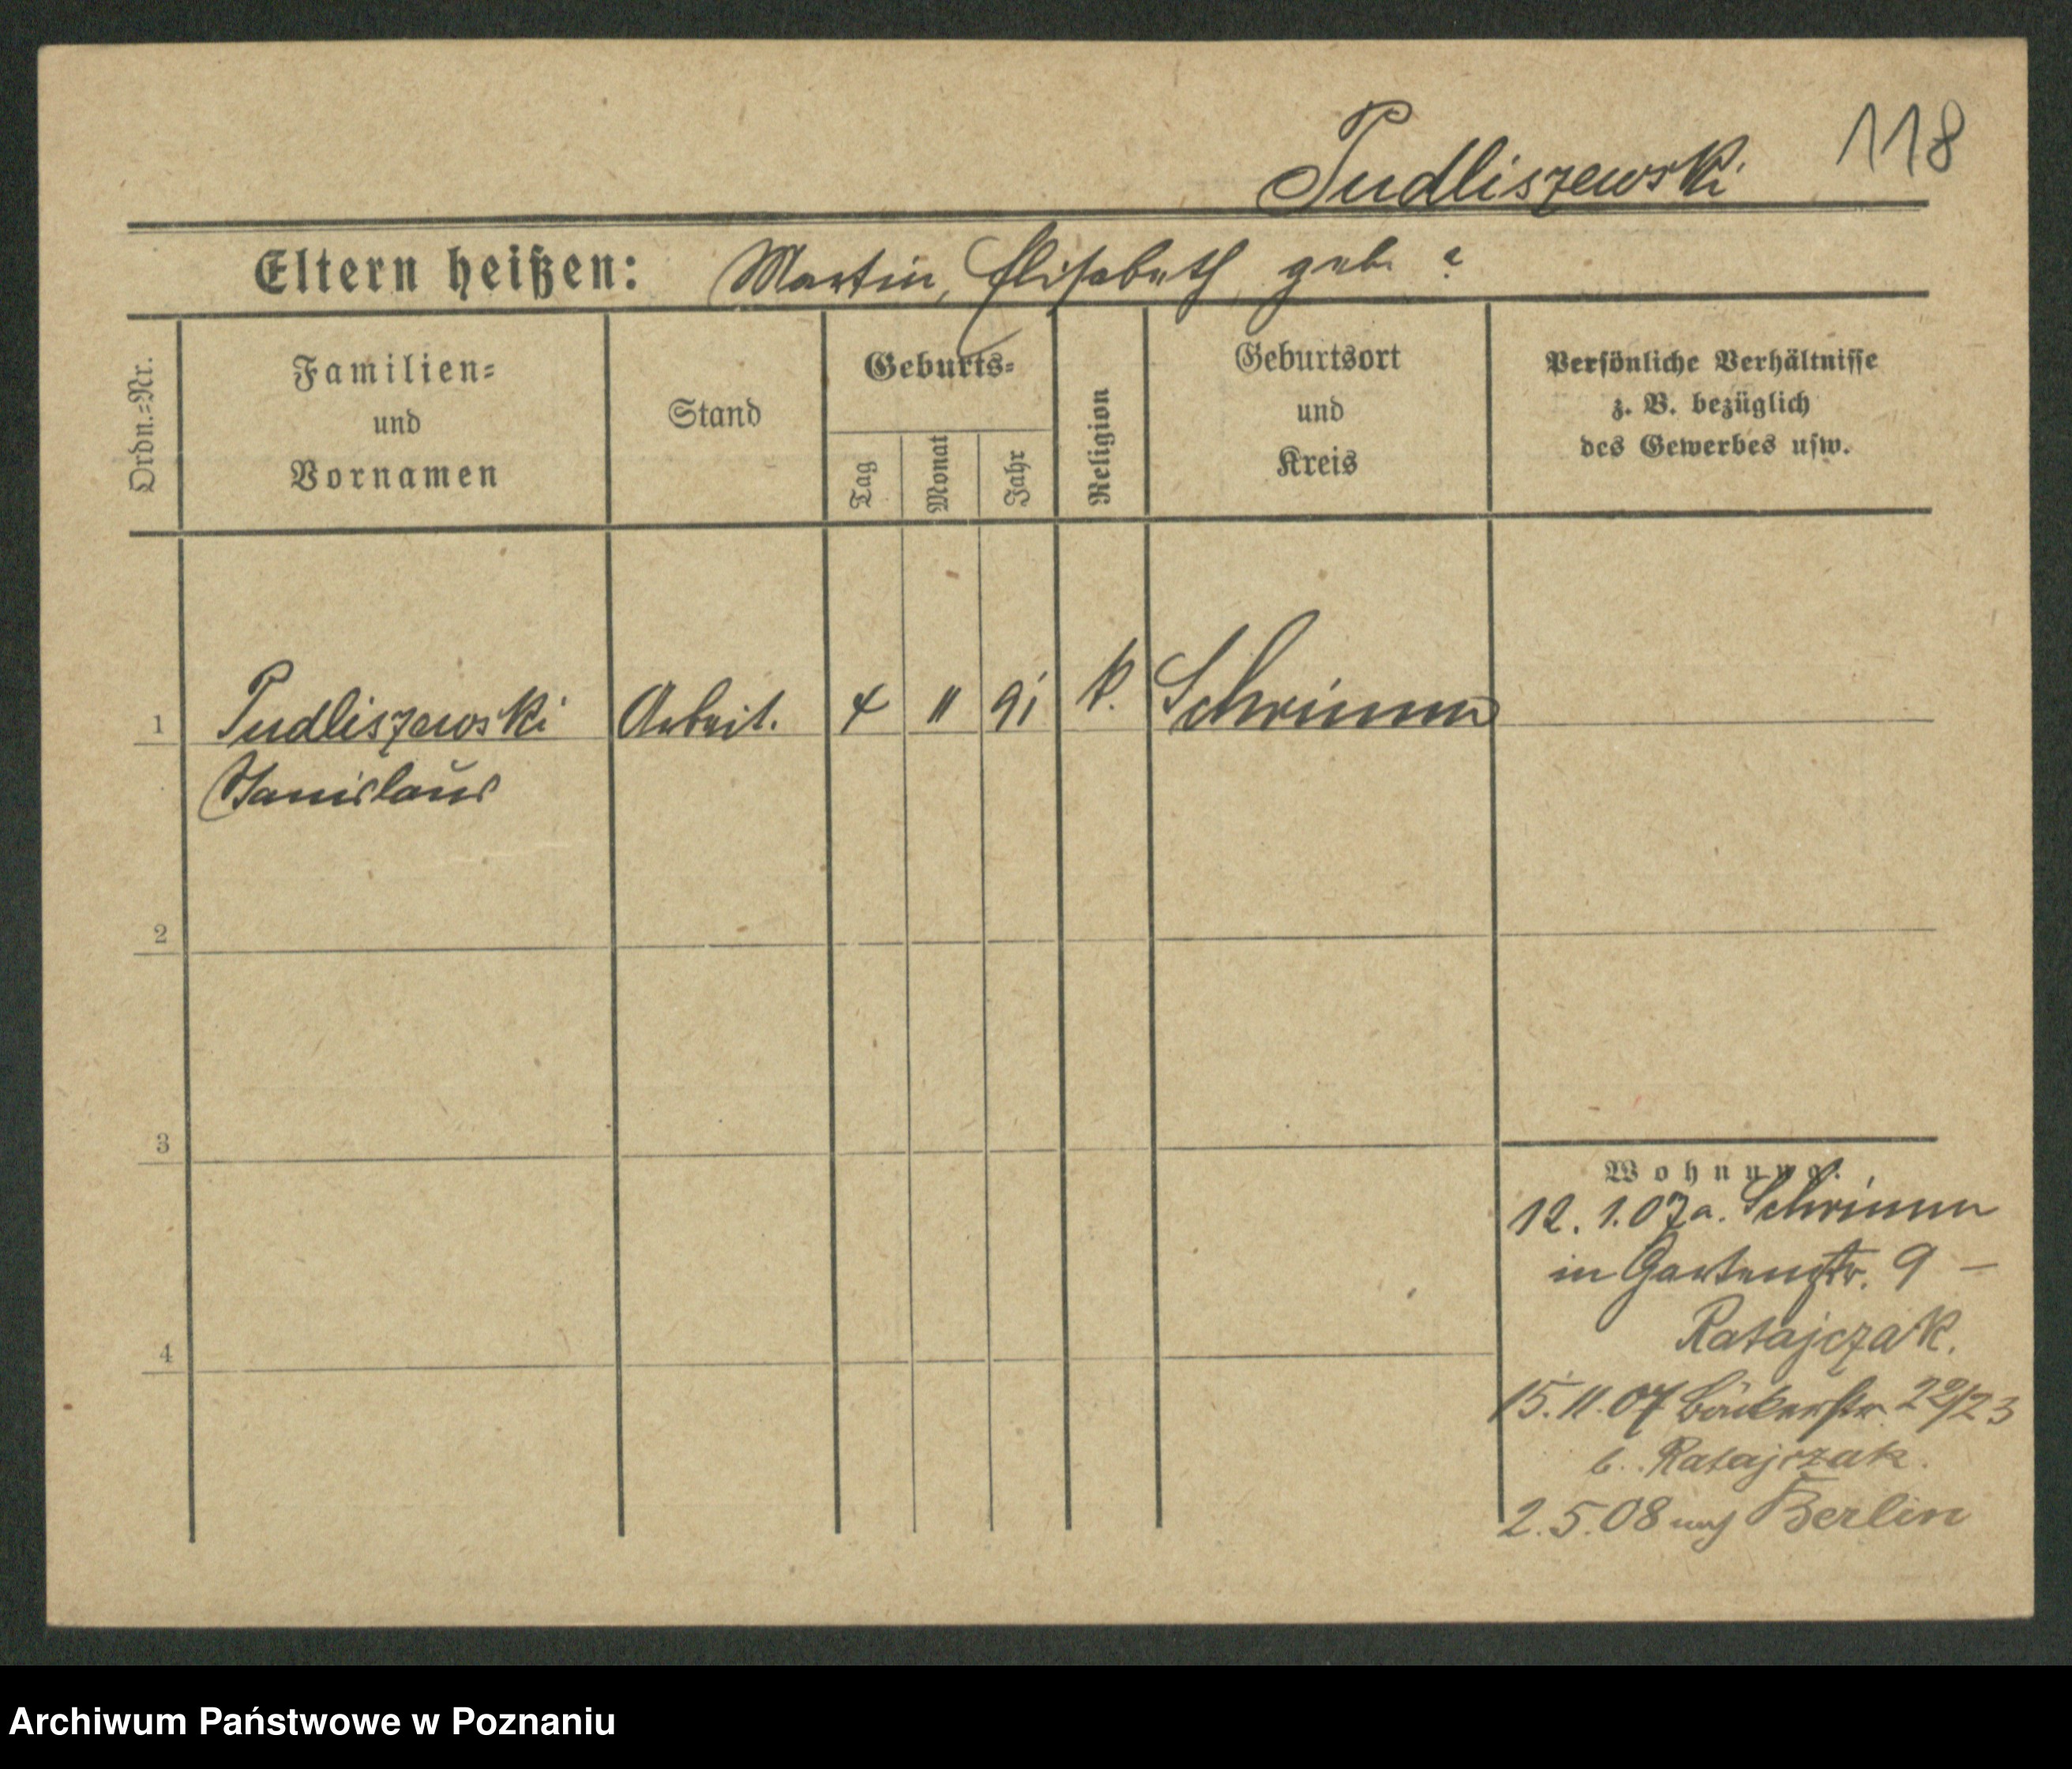 118
Pudliszewski
Eltern heißen: Martin, Elisabeth geb. ?
Ordn.=Nr.
Familien=
und
Vornamen
Stand
Geburts=
Tag
Monat
Jahr
Religion
Geburtsort
und
Kreis
Persönliche Verhältnisse
z. B. bezüglich
des Gewerbes usw.
1 Pudliszewski Arbeit. 4 11 91 k. Schrimm
Stanislaus
2
3
4
Wohnung.
12. 1. 07 a. Schrimm
in Gartenstr. 9 –
Ratajczak.
15. 11. 07 Bäckerstr. 22/23
b. Ratajczak.
2. 5. 08 nach Berlin
Archiwum Państwowe w Poznaniu